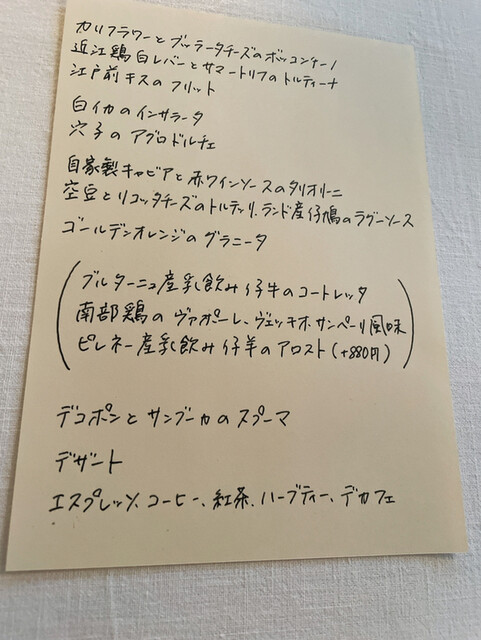 カリフラワーとブッラータチーズのボッコンチーノ
近江鶏白レバーとサマートリュフのトルティーナ
江戸前キスのフリット
白イカのインサラータ
穴子のアグロドルチェ
自家製キャビアと赤ワインソースのタリオリーニ
空豆とリコッタチーズのトルテッリ、ランド産仔鳩のラグーソース
ゴールデンオレンジのグラニータ
ブルターニュ産乳飲み仔牛のコートレッタ
南部鶏のヴァポーレ、ヴェッキオサンペーリ風味
ピレネー産乳飲み仔羊のアロスト(+880円)
デコポンとサンブーカのスプーマ
デザート
エスプレッソ、コーヒー、紅茶、ハーブティー、デカフェ